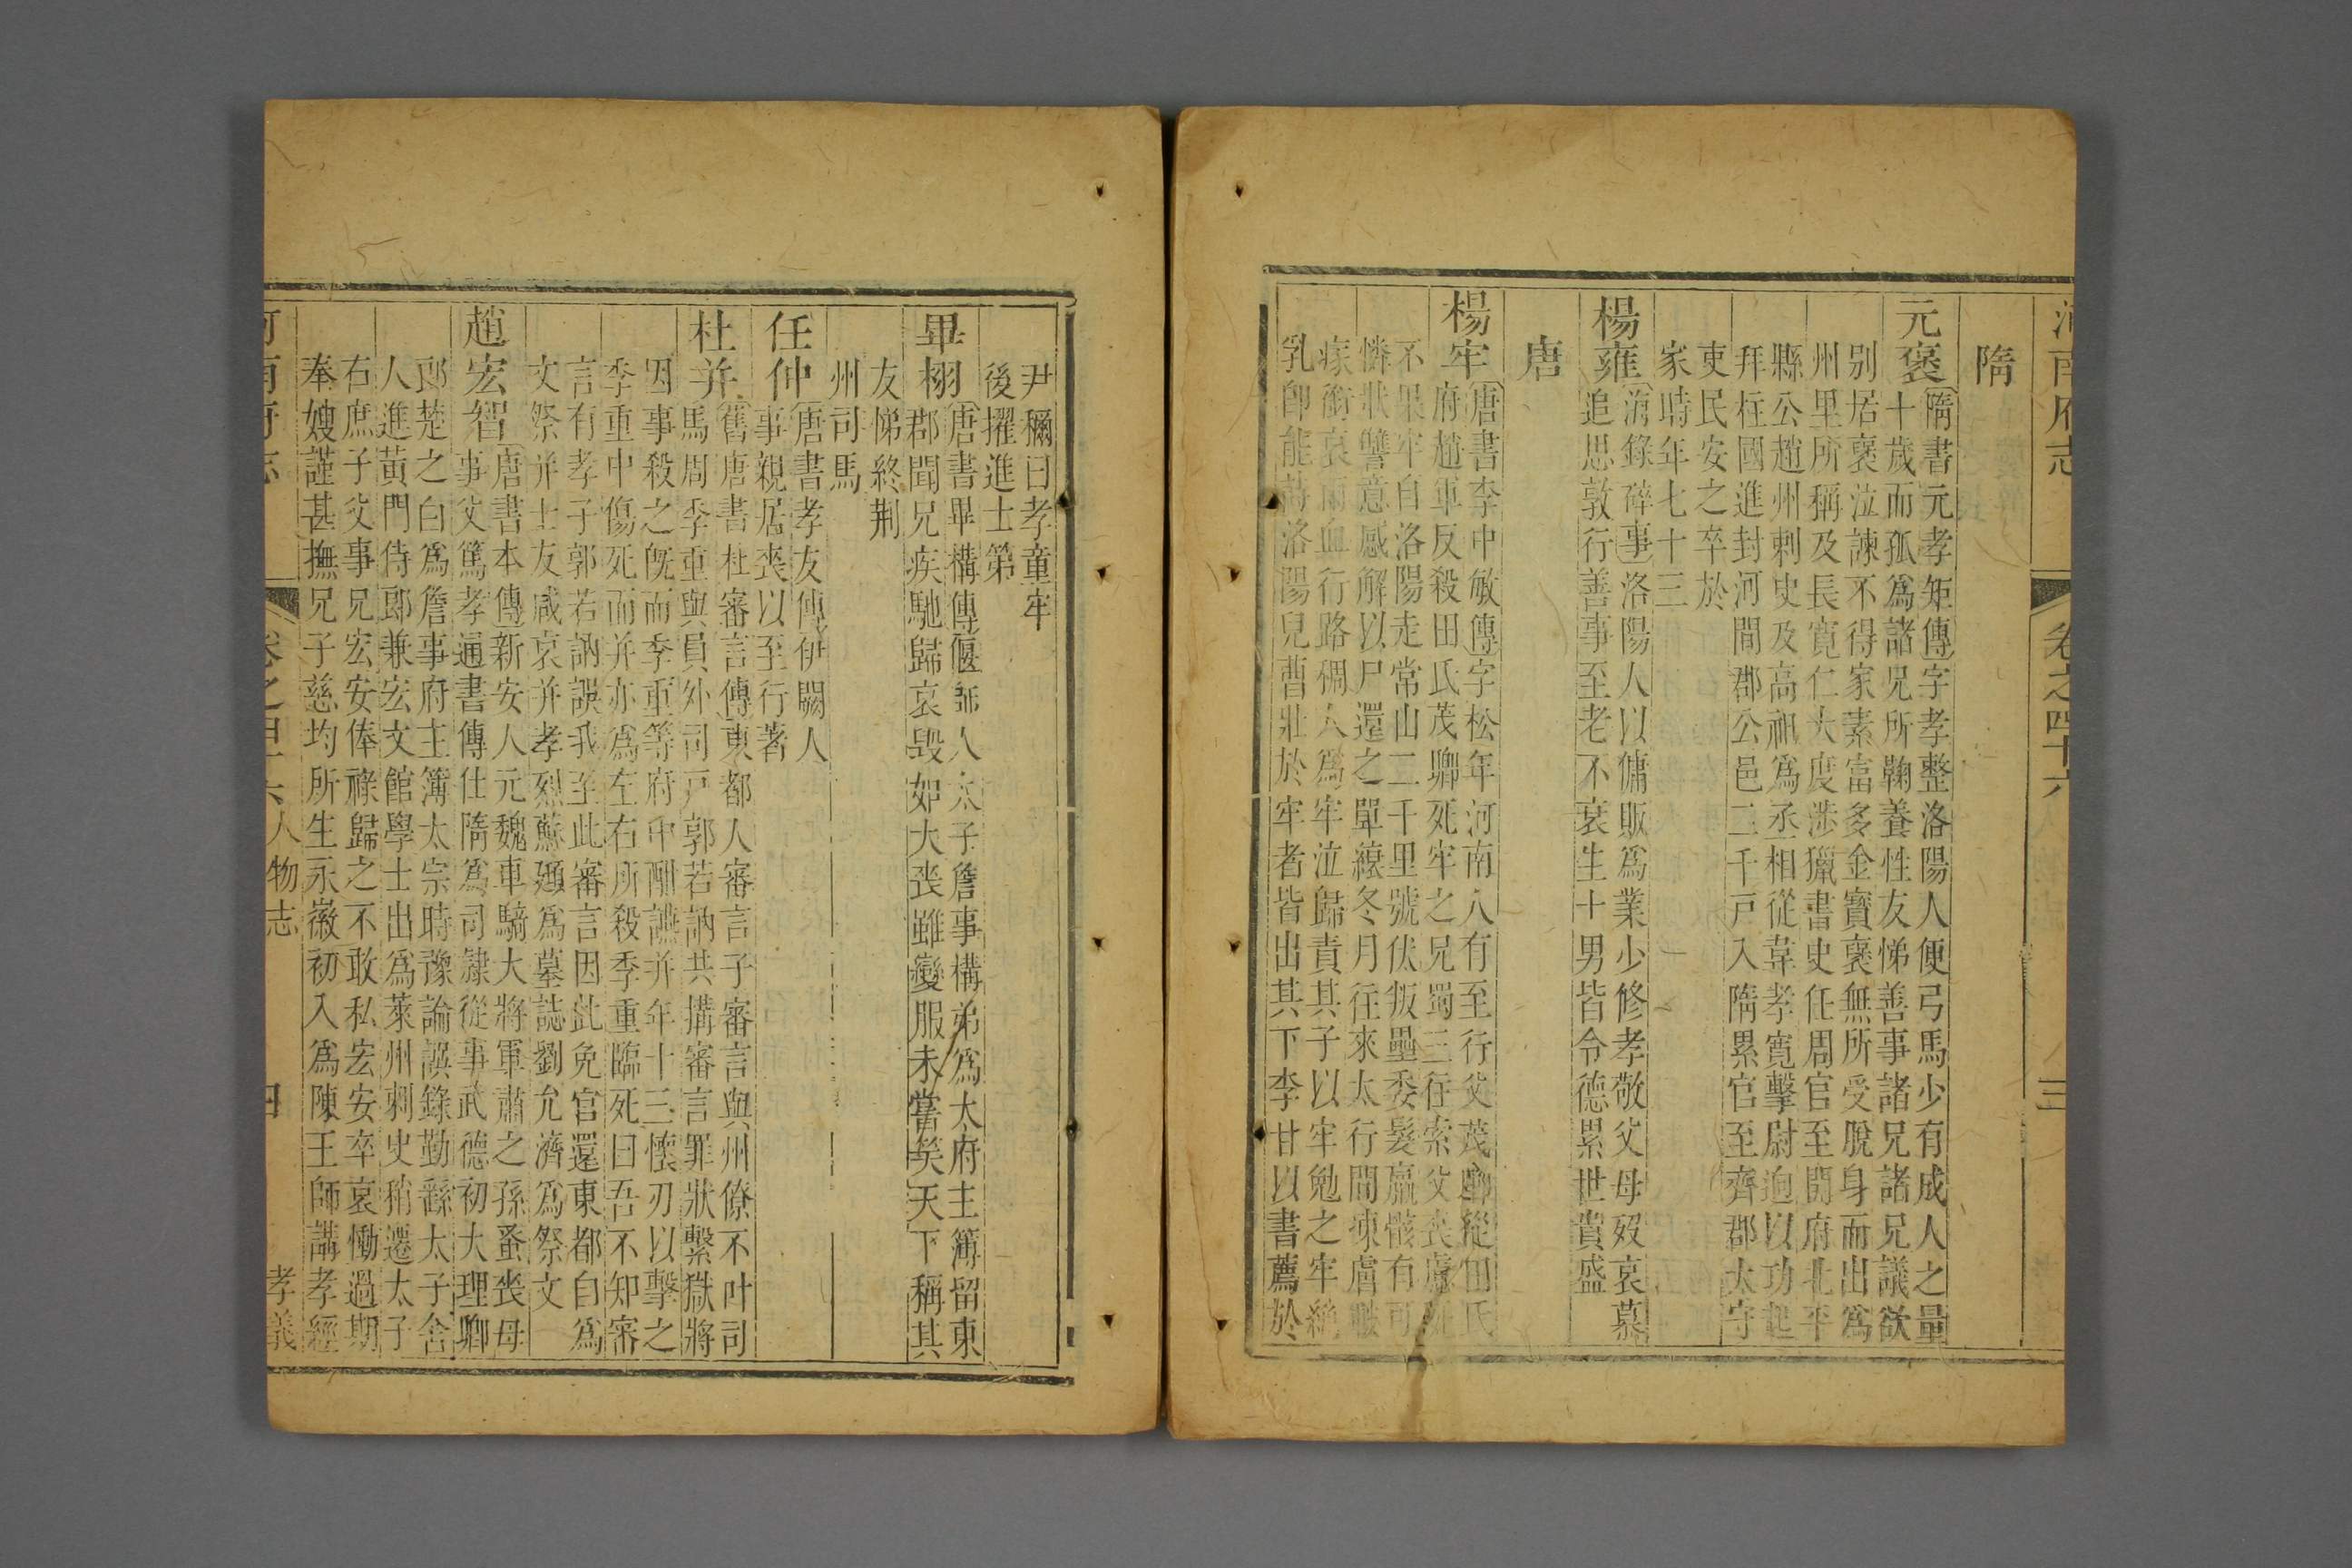 河南府志
卷之四十六
三
隋
元褒
隋書元孝矩傳字孝整洛陽人便弓馬少有成人之量
十歲而孤爲諸兄所鞠養性友悌善事諸兄諸兄議欲
别居褒泣諫不得家素富多金寶褒無所受脫身而出爲
州里所稱及長寬仁大度涉獵書史任周官至開府北平
縣公趙州刺史及高祖爲丞相從韋孝寬擊尉迥以功起
拜柱國進封河間郡公邑二千戸入隋累官至齊郡太守
吏民安之卒於
家時年七十三
楊雍
洛陽人以傭販爲業少修孝敬父母歿哀慕
追思敦行善事至老不衰生十男皆令德累世貴盛
唐
楊牢
唐書李中敏傳字松年河南人有至行父茂卿從田氏
府趙軍反殺田氏茂卿死牢之兄蜀三往索父喪慮死
不果牢自洛陽走常山二千里號伏叛壘委髮羸骸有可
憐狀讐意感解以尸還之單縗冬月往來太行間凍膚皸
瘃銜哀雨血行路稠人爲牢泣歸責其子以牢勉之牢絶
乳即能詩洛陽兒曹壯於牢者皆出其下李甘以書薦於
尹稱曰孝童牢
後擢進士第
畢栩
唐書畢構傳偃師人太子詹事構弟爲太府主簿留東
郡聞兄疾馳歸哀毀如大喪雖變服未嘗笑天下稱其
友悌終荆
州司馬
任仲
唐書孝友傳伊闕人
事親居喪以至行著
杜并
舊唐書杜審言傳東都人審言子審言與州僚不叶司
馬周季重與員外司戸郭若訥共搆審言罪狀繫獄將
因事殺之旣而季重等府中酣讌并年十三懷刃以擊之
季重中傷死而并亦爲左右所殺季重臨死曰吾不知審
言有孝子郭若訥誤我至此審言因此免官還東都自爲
文祭并士友咸哀并孝烈蘇頲爲墓誌劉允濟爲祭文
趙宏智
唐書本傳新安人元魏車騎大將軍肅之孫蚤喪母
事父篤孝通書傳仕隋爲司隸從事武德初大理卿
郎楚之白爲詹事府主簿太宗時豫論譔錄勤繇太子舍
人進黃門侍郎兼宏文館學士出爲萊州刺史稍遷太子
右庶子父事兄宏安俸祿歸之不敢私宏安卒哀慟過期
奉嫂謹甚撫兄子慈均所生永徽初入爲陳王師講孝經
河南府志
卷之四十六人物志
四
孝義